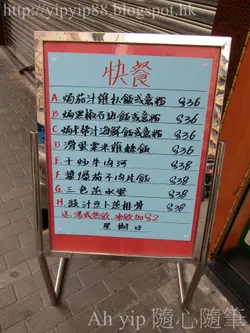 http://yipyip88.blogspot.hk
快餐
A. 焗茄汁雞扒飯或意粉 $36
B. 焗黑椒石班飯或意粉 $36
C. 焗卡邦汁海鮮飯或意粉 $36
D. 滑蛋粟米雞絲飯 $36
E. 干炒牛肉河 $38
F. 炒肉片飯 $38
G. 三色蒸水蛋 $38
H. 豉汁蒸排骨 $38
送:港式热飲 凍飲加$2
星期日
Ah yip 隨心隨筆